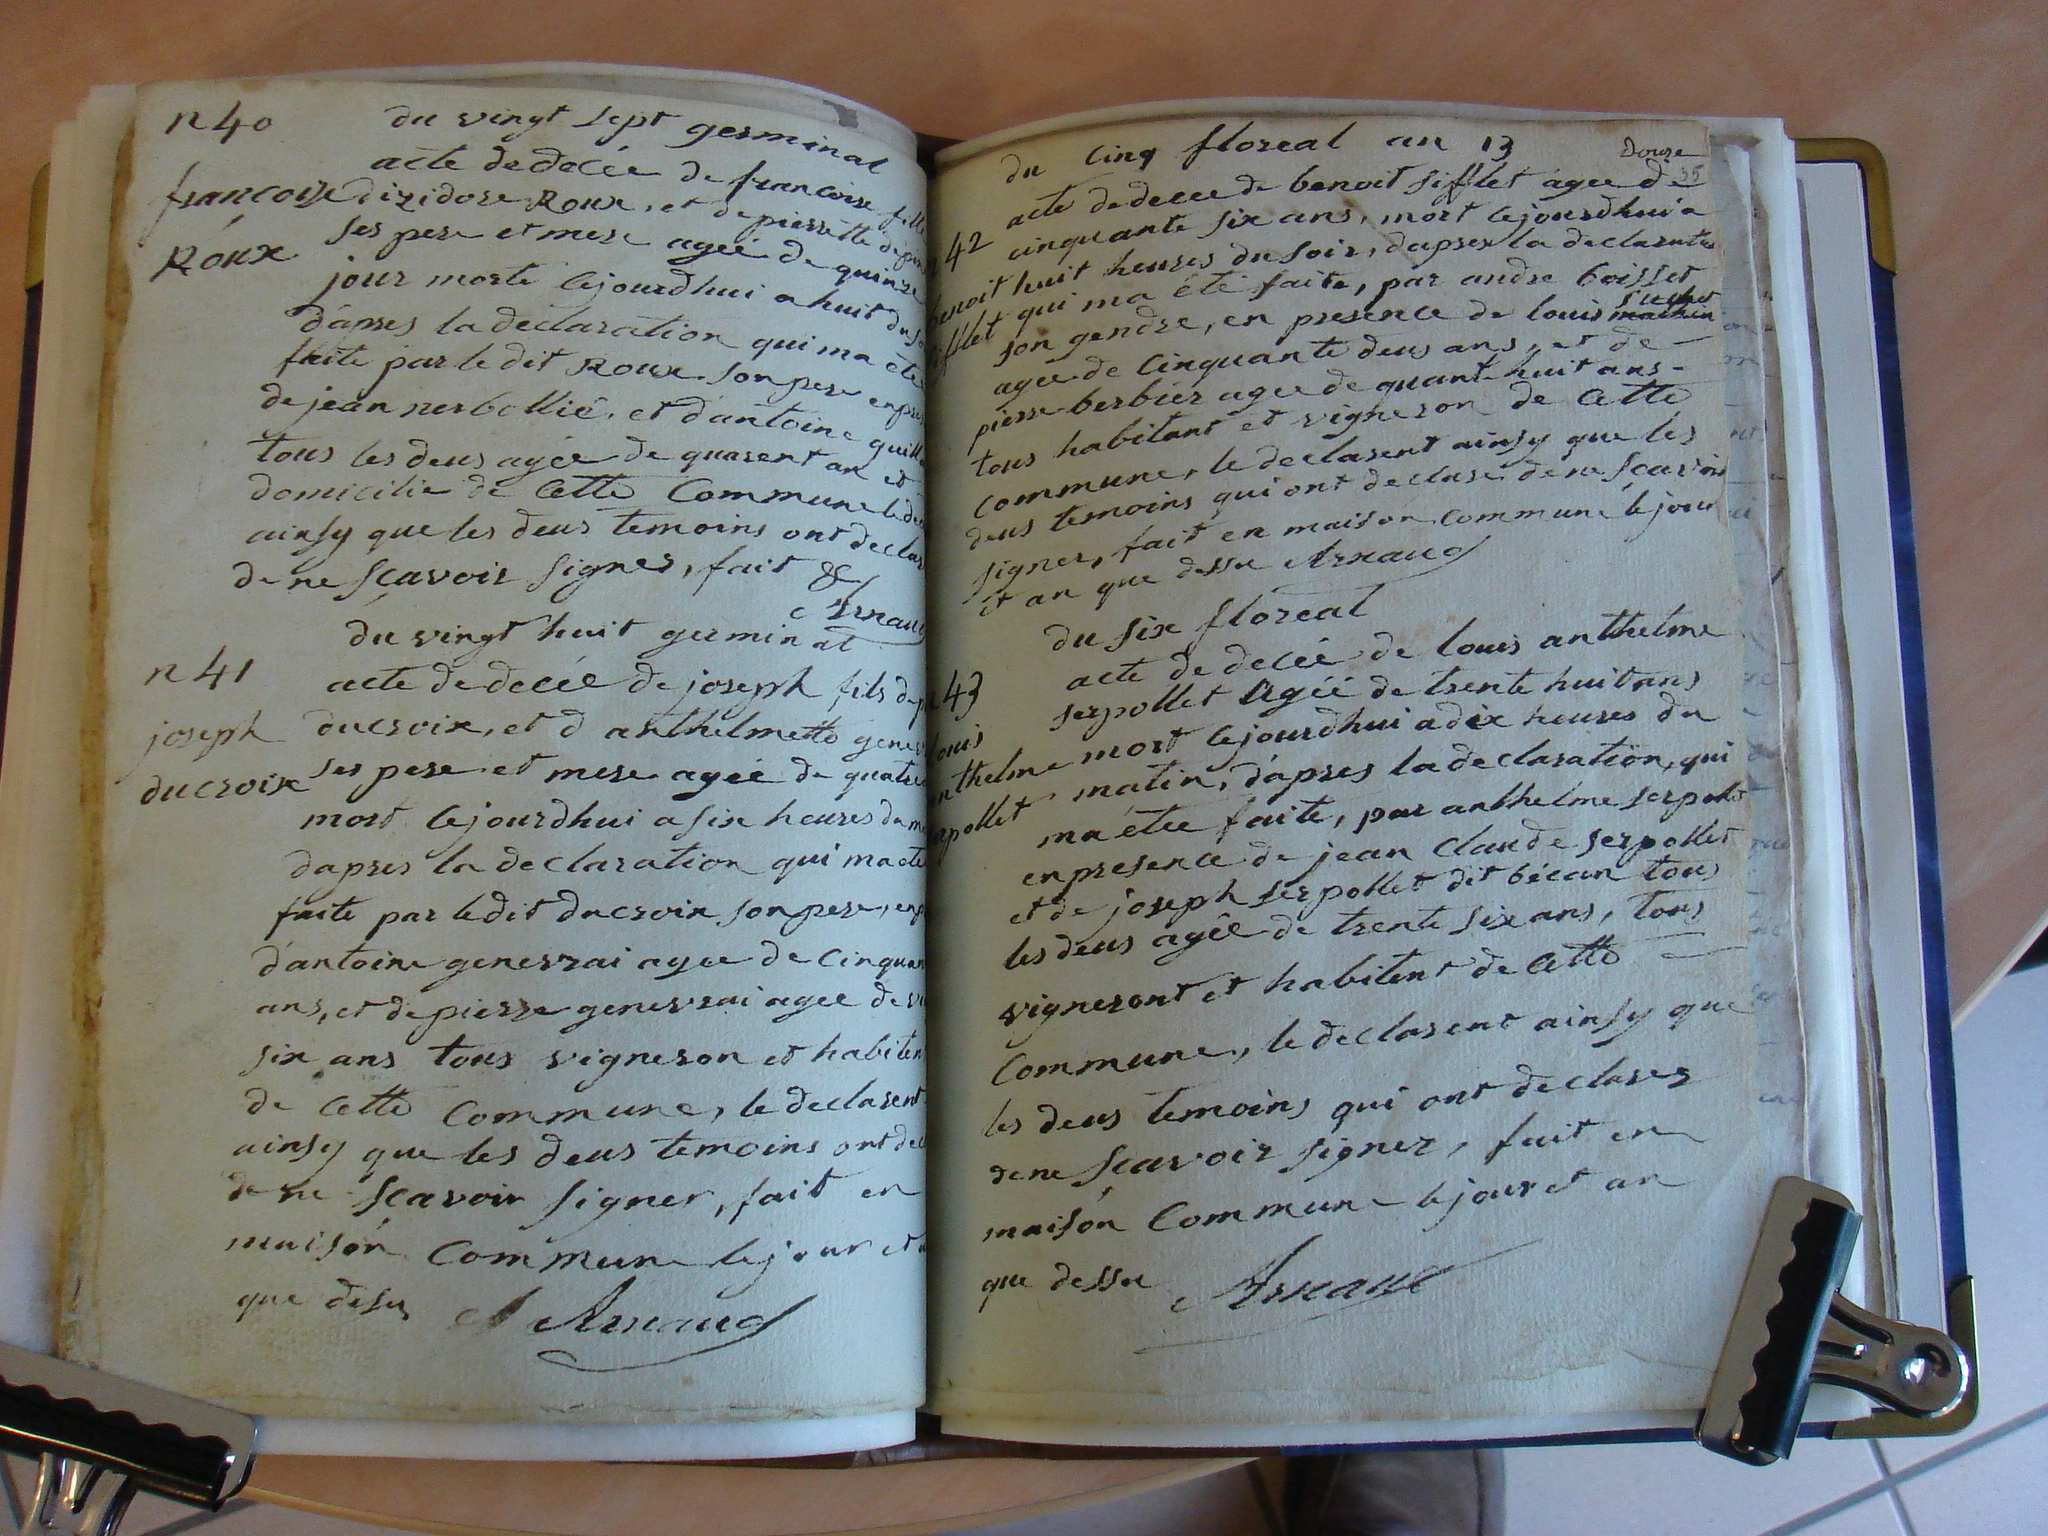 n 40
du vingt sept germinal
acte de decée de francoise fille
francoise
Roux
dizidore Roux, et de pierrette
ses pere et mere agée de quinze
jour morte cejourdhui a huit du
dapres la declaration qui ma ete
faite par ledit Roux son pere en
de jean nerbollié, et dantoine
tous les deus agée de quarent an et
domicilie de Cette Commune le
ainsy que les deus temoins ont
de ne scavoir signer, fait &
Arnaud
n 41
du vingt huit germinal
acte de decée de joseph fils de
joseph
ducroix
ducroix, et d anthelmette
ses pere et mere agée de quatre
mort cejourdhui a six heures du
dapres la declaration qui ma ete
faite par ledit ducroix son pere, en
dantoine genevrai agee de Cinquan
ans, et de pierre genevrai agee de
six ans tous vigneron et habiten
de Cette Commune, le declarent
ainsy que les deus temoins ont
de ne scavoir signer, fait en
maison Commune le jour et
que desus Arnaud
du Cinq floreal an 13
douze
35
42
benoit
sifflet
acte de decee de benoit sifflet agee de
cinquante six ans, mort cejourdhui a
huit heures du soir, dapres la declaration
qui ma été faite, par andre boisset
son gendre, en presence de louis
agee de Cinquante deus ans, et de
pierre berbier agee de quant huit ans
tous habitant et vigneron de Cette
Commune, le declarent ainsy que les
deus temoins qui ont declare de ne scavoir
signer, fait en maison commune le jour
et an que dessu Arnaud
du six floreal
n 43
louis
anthelme
serpollet
acte de decée de louis anthelme
serpollet agéé de trente huit ans
mort cejourdhui a dix heures du
matin, dapres la declaration, qui
ma étee faite, par anthelme serpollet
en presence de jean Claude serpollet
et de joseph serpollet dit bécan tous
les deus agée de trente six ans, tous
vigneront et habitent de Cette
Commune, le declarent ainsy que
les deus temoins qui ont declarez
de ne scavoir signer, fait en
maison Commune le jour et an
que dessu Arnaud